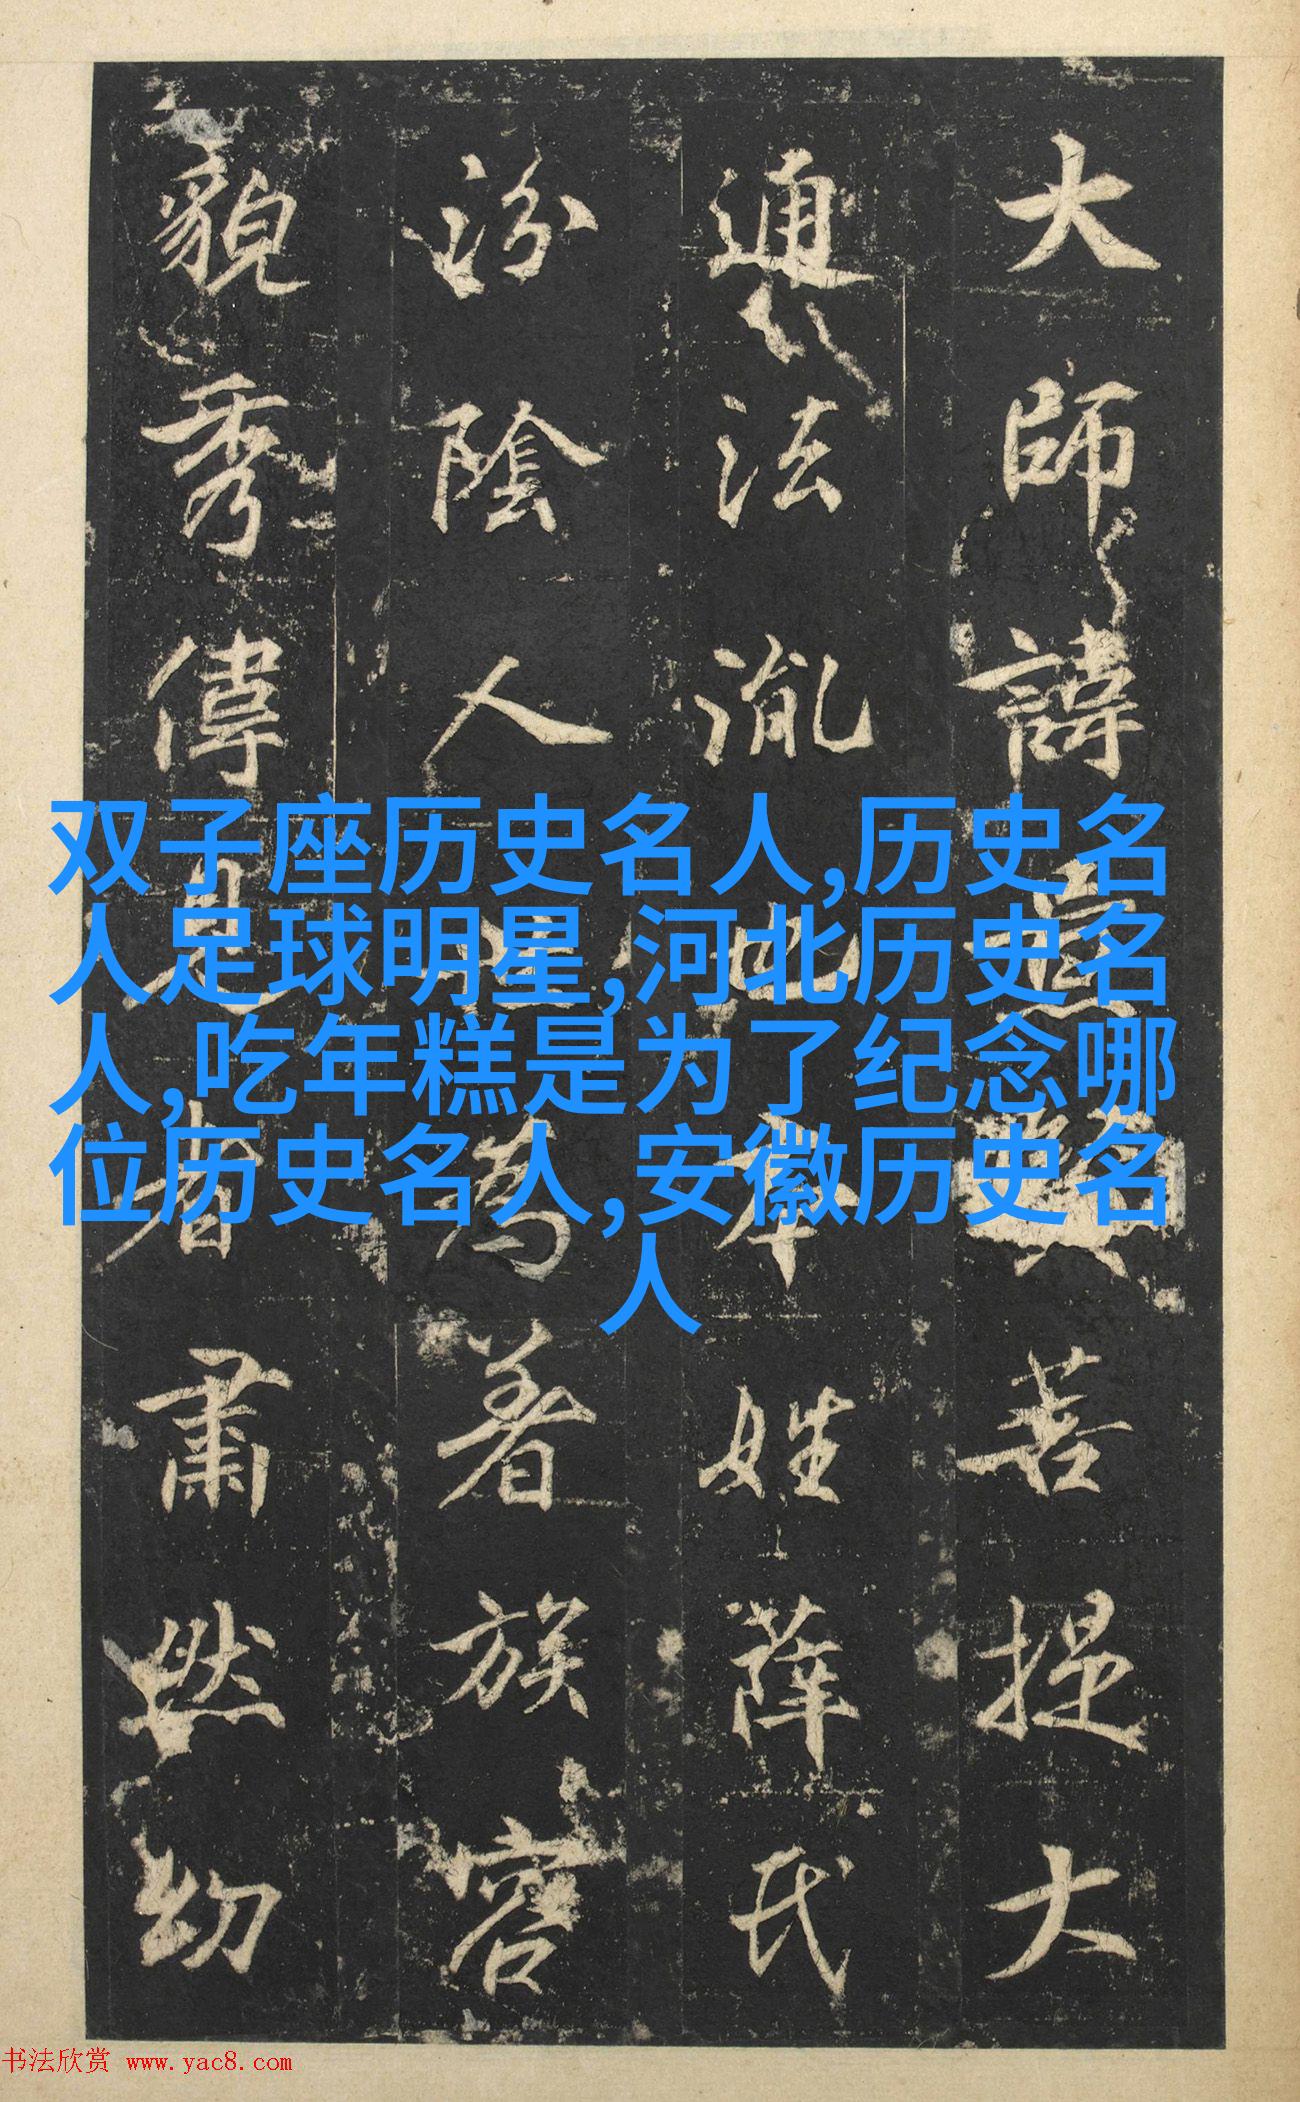 大師諱菩提大
通法本姓薛氏
汾陰人世為著族容
貌秀偉見者肅然幼
双子座历史名人,历史名
人足球明星,河北历史名
人,吃年糕是为了纪念哪
位历史名人,安徽历史名
人
书法欣赏 www.yac8.com